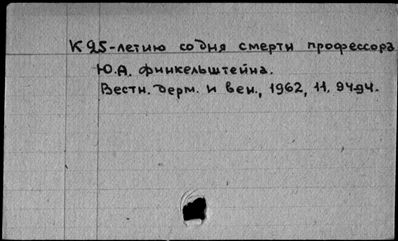 К 25-летию со дня смерти профессора
Ю.А. Финкельштейна.
Вестн. дерм. и вен., 1962, 11, 94-94.